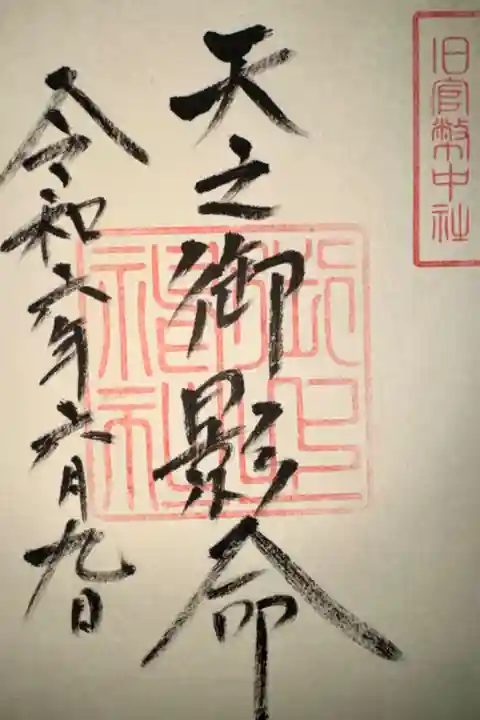 旧官幣中社
天之御影命
御上神社
令和六年六月九日